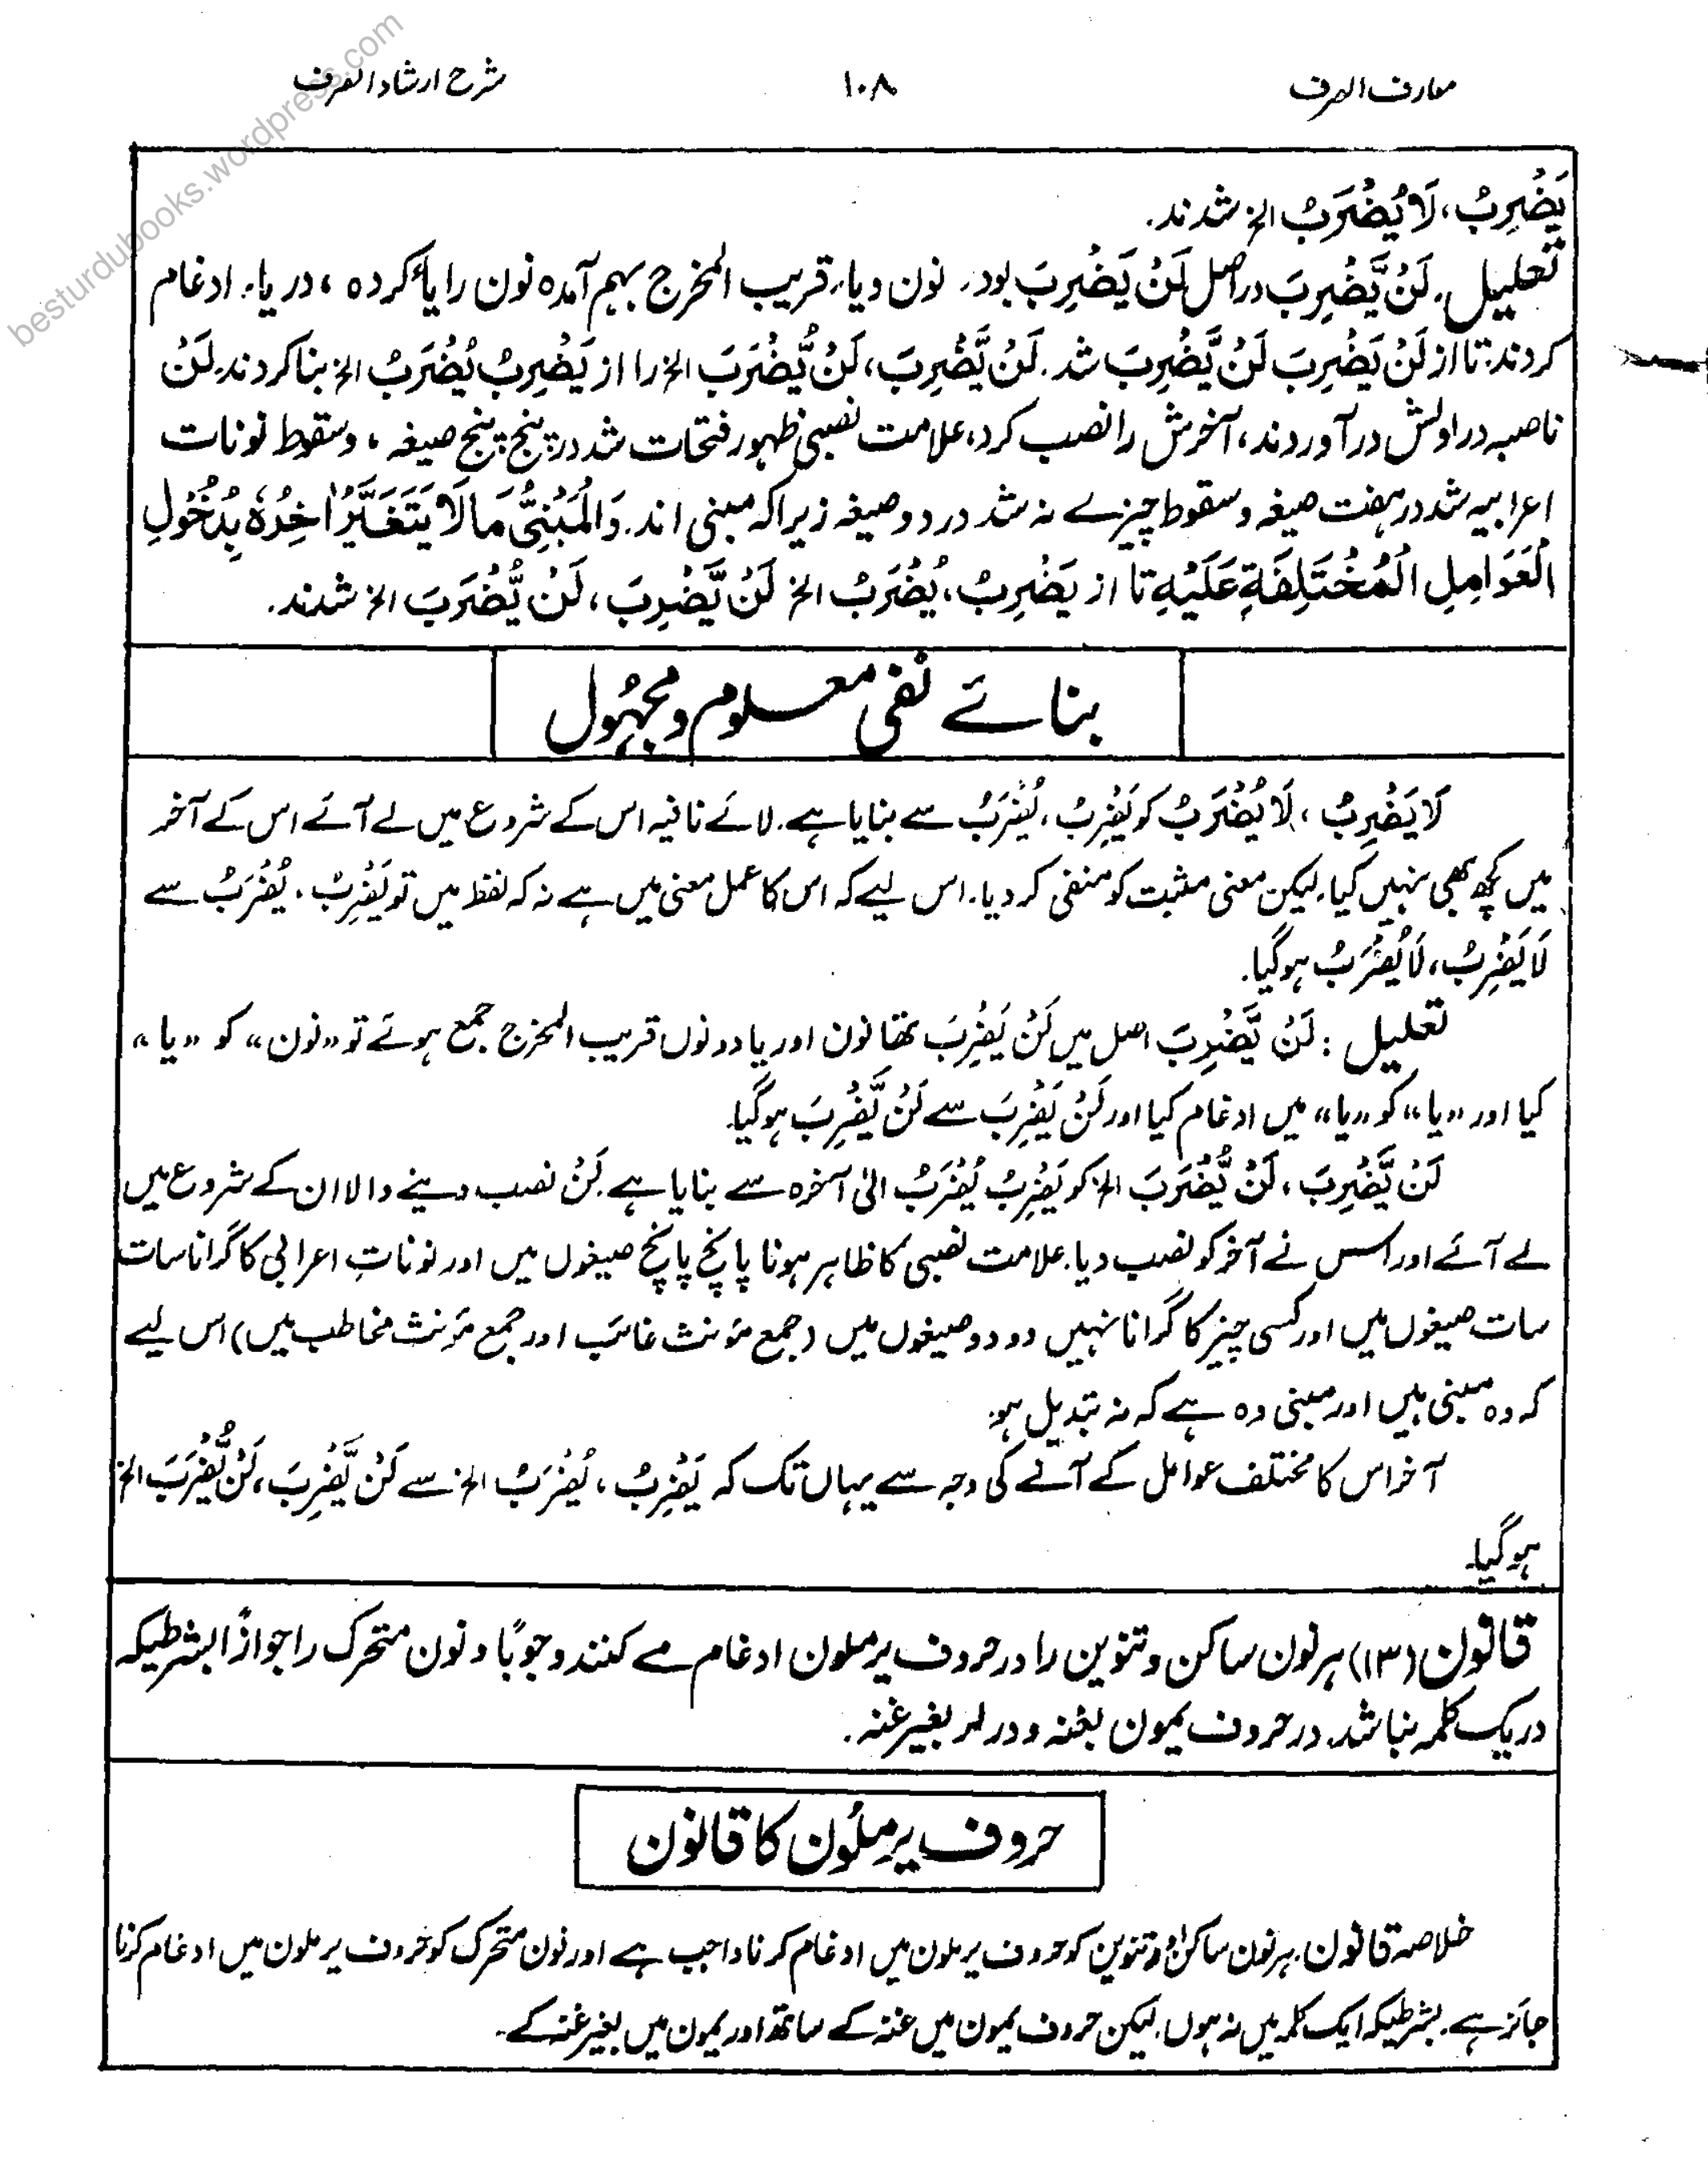 معارف الصرف ۱۰۸ شرح ارشاد الصرف
besturdubooks.wordpress.com
یَضْرِبُ، لَا یُضْرَبُ الخ شدند۔
تعلیل۔ لَنْ یَّضْرِبَ در اصل لَنْ یَضْرِبَ بود۔ نون و یاء قریب المخرج بہم آمدہ نون را یاء کردہ، در یاء ادغام
کردند تا از لَنْ یَضْرِبَ لَنْ یَّضْرِبَ شد۔ لَنْ یَّضْرِبَ، لَنْ یُّضْرَبَ الخ را از یَضْرِبُ یُضْرَبُ الخ بنا کردند۔ لَنْ
ناصبہ در اولش در آوردند، آخرش را نصب کرد، علامت نصبی ظہور فتحات شد در پنج پنج صیغہ، و سقوط نونات
اعرابیہ شد در ہفت صیغہ و سقوط چیزے نہ شد در دو صیغہ زیرا کہ مبنی اند۔ وَالْمَبْنِیُّ مَا لَا یَتَغَیَّرُ اٰخِرُہٗ بِدُخُوْلِ
الْعَوَامِلِ الْمُخْتَلِفَةِ عَلَیْهِ تا از یَضْرِبُ، یُضْرَبُ الخ لَنْ یَّضْرِبَ، لَنْ یُّضْرَبَ الخ شدند۔
بنائے نفی معلوم و مجہُول
لَا یَضْرِبُ، لَا یُضْرَبُ کو یَضْرِبُ، یُضْرَبُ سے بنایا ہے۔ لائے نافیہ اس کے شروع میں لے آئے اس کے آخر
میں کچھ بھی نہیں کیا۔ لیکن معنی مثبت کو منفی کر دیا۔ اس لیے کہ اس کا عمل معنی میں ہے نہ کہ لفظ میں تو یَضْرِبُ، یُضْرَبُ سے
لَا یَضْرِبُ، لَا یُضْرَبُ ہوگیا۔
تعلیل : لَنْ یَّضْرِبَ اصل میں لَنْ یَضْرِبَ تھا نون اور یا دونوں قریب المخرج جمع ہوئے تو «نون» کو «یا»
کیا اور «یا» کو «یا» میں ادغام کیا اور لَنْ یَضْرِبَ سے لَنْ یَّضْرِبَ ہوگیا۔
لَنْ یَّضْرِبَ، لَنْ یُّضْرَبَ الخ کو یَضْرِبُ یُضْرَبُ الیٰ آخرہ سے بنایا ہے۔ لَنْ نصب دینے والا ان کے شروع میں
لے آئے اور اس نے آخر کو نصب دیا۔ علامت نصبی کا ظاہر ہونا پانچ پانچ صیغوں میں اور نوناتِ اعرابی کا گرانا سات
سات صیغوں میں اور کسی چیز کا گرانا نہیں دو دو صیغوں میں (جمع مؤنث غائب اور جمع مؤنث مخاطب میں) اس لیے
کہ وہ مبنی ہیں اور مبنی وہ ہے کہ نہ تبدیل ہو۔
آخر اس کا مختلف عوامل کے آنے کی وجہ سے یہاں تک کہ یَضْرِبُ، یُضْرَبُ الخ سے لَنْ یَّضْرِبَ، لَنْ یُّضْرَبَ الخ
ہوگیا۔
قانون (۱۳) ہر نون ساکن و تنوین را در حروف یرملون ادغام مے کنند وجوبًا و نون متحرک را جوازًا بشرطیکہ
در یک کلمہ نباشد۔ در حروف یمون بغنہ و در لر بغیر غنہ۔
حروف یرملُون کا قانون
خلاصہ قانون۔ ہر نون ساکن و تنوین کو حروف یرملون میں ادغام کرنا واجب ہے اور نون متحرک کو حروف یرملون میں ادغام کرنا
جائز ہے۔ بشرطیکہ ایک کلمہ میں نہ ہوں۔ لیکن حروف یمون میں غنہ کے ساتھ اور یمون میں بغیر غنہ کے۔